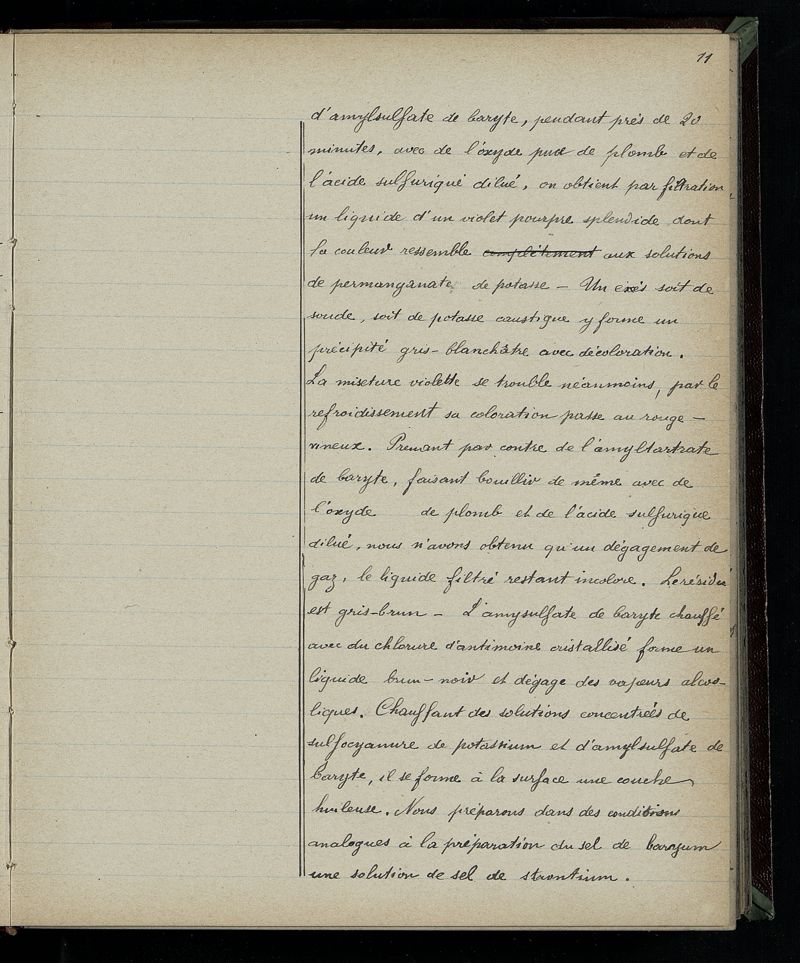 11
d'amylsulfate de baryte, pendant près de 20
minutes, avec de l'oxyde puce de plomb et de
l'acide sulfurique dilué, on obtient par filtration,
un liquide d'un violet pourpre splendide dont
la couleur ressemble complètement aux solutions
de permanganate de potasse — Un exès soit de
soude, soit de potasse caustique y forme un
précipité gris-blanchâtre avec décoloration.
La mixture violette se trouble néanmoins, par le
refroidissement sa coloration passe au rouge-
vineux. Prenant par contre de l'amyltartrate
de baryte, faisant bouillir de même avec de
l'oxyde de plomb et de l'acide sulfurique
dilué, nous n'avons obtenu qu'un dégagement de
gaz, le liquide filtré restant incolore. Le résidu
est gris-brun — L'amysulfate de baryte chauffé
avec du chlorure d'antimoine cristallisé forme un
liquide brun-noir et dégage des vapeurs alcoo-
liques. Chauffant des solutions concentrées de
sulfocyanure de potassium et d'amylsulfate de
baryte, il se forme à la surface une couche
huileuse. Nous préparons dans des conditions
analogues à la préparation du sel de baryum
une solution de sel de strontium.